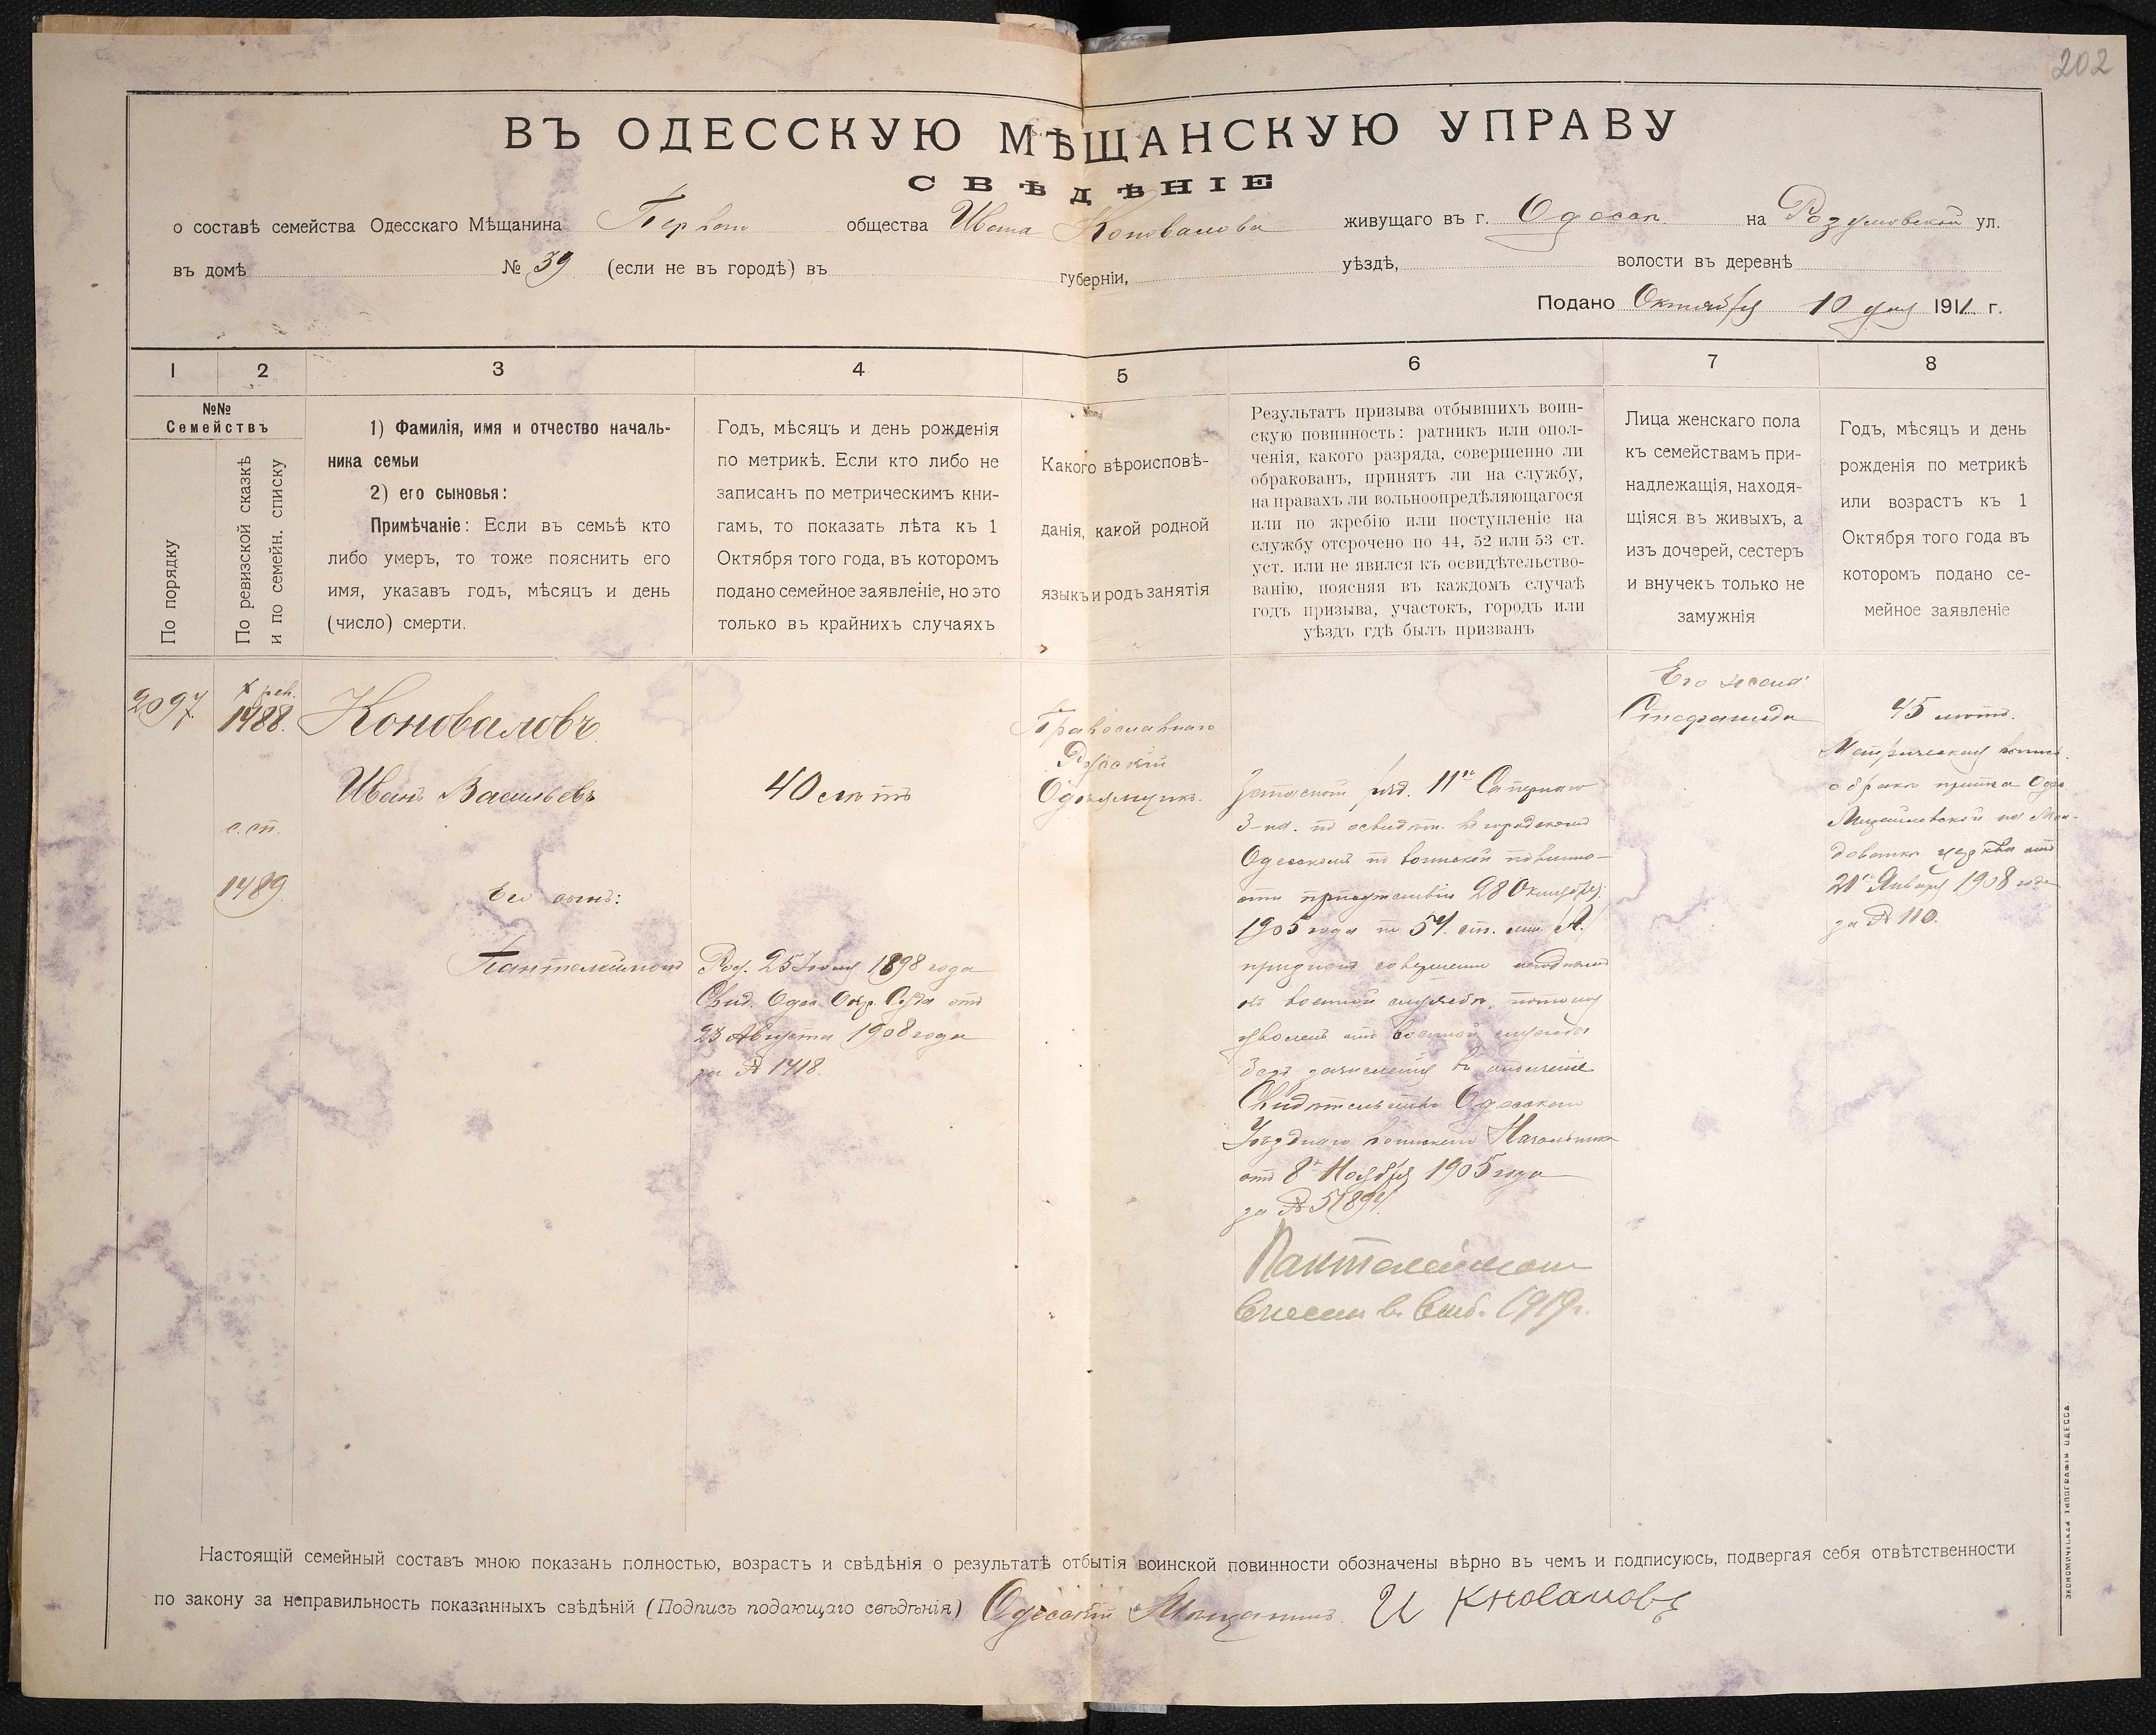 202
ВЪ ОДЕССКУЮ МѢЩАНСКУЮ УПРАВУ
СВѢДѢНІЕ
о составѣ семейства Одесскаго Мѣщанина общества Ивана Коновалова живущаго въ г. Одессѣ на Розумовской ул.
въ домѣ № 39 (если не въ городѣ) въ губерніи, уѣздѣ, волости въ деревнѣ
Подано Октября 10 дня 1911 г.
1 2 3 4 5 6 7 8
№№
Семействъ
По порядку
По ревизской сказкѣ
и по семейн. списку
1) Фамилія, имя и отчество началь-
ника семьи
2) его сыновья:
Примѣчаніе: Если въ семьѣ кто
либо умеръ, то тоже пояснить его
имя, указавъ годъ, мѣсяцъ и день
(число) смерти.
Годъ, мѣсяцъ и день рожденія
по метрикѣ. Если кто либо не
записанъ по метрическимъ кни-
гамъ, то показать лѣта къ 1
Октября того года, въ которомъ
подано семейное заявленіе, но это
только въ крайнихъ случаяхъ
Какого вѣроисповѣ-
данія, какой родной
языкъ и родъ занятія
Результатъ призыва отбывшихъ воин-
скую повинность: ратникъ или опол-
ченія, какого разряда, совершенно ли
обракованъ, принятъ ли на службу,
на правахъ ли вольноопредѣляющагося
или по жребію или поступленіе на
службу отсрочено по 44, 52 или 53 ст.
уст. или не явился къ освидѣтельство-
ванію, поясняя въ каждомъ случаѣ
годъ призыва, участокъ, городъ или
уѣздъ гдѣ былъ призванъ
Лица женскаго пола
къ семействамъ при-
надлежащія, находя-
щіяся въ живыхъ, а
изъ дочерей, сестеръ
и внучекъ только не
замужнія
Годъ, мѣсяцъ и день
рожденія по метрикѣ
или возрастъ къ 1
Октября того года въ
которомъ подано се-
мейное заявленіе
2097.
X рев.
1488.
с. сп.
1489.
Коноваловъ
Иванъ Васильевъ
Его сынъ:
Пантелеймонъ
40 лѣтъ
Род. 25 1898 года
Свид. Одес. Окр. Суда отъ
23 Августа 1908 года
за № 1418.
Православнаго
Русскій
Запасной ряд. 11го Сапернаго
Одесскомъ по воинской повинно-
сти присутствіи 28 Октября
1905 года по 54. ст. лит. А.
признанъ совершенно негоднымъ
къ военной службѣ, потому
уволенъ отъ военной службы
безъ зачисленія въ ополченіе
Свидѣтельство Одесскаго
Уѣзднаго воинскаго Начальника
отъ 8го Ноября 1905 года
за № 51894.
Пантелеймон
внесен в 1919 г.
Его жена:
Стефанида
45 лѣтъ.
Метрическая
о бракѣ причта Одес.
Михайловской на Мол-
даванкѣ церкви отъ
21го Января 1908 года
за № 110.
Настоящій семейный составъ мною показанъ полностью, возрастъ и свѣдѣнія о результатѣ отбытія воинской повинности обозначены вѣрно въ чемъ и подписуюсь, подвергая себя отвѣтственности
по закону за неправильность показанныхъ свѣдѣній (Подпись подающаго свѣдѣнія) Одесскій Мѣщанинъ И Кноваловъ
ЭКОНОМИЧЕСКАЯ ТИПОГРАФІЯ ОДЕССА.